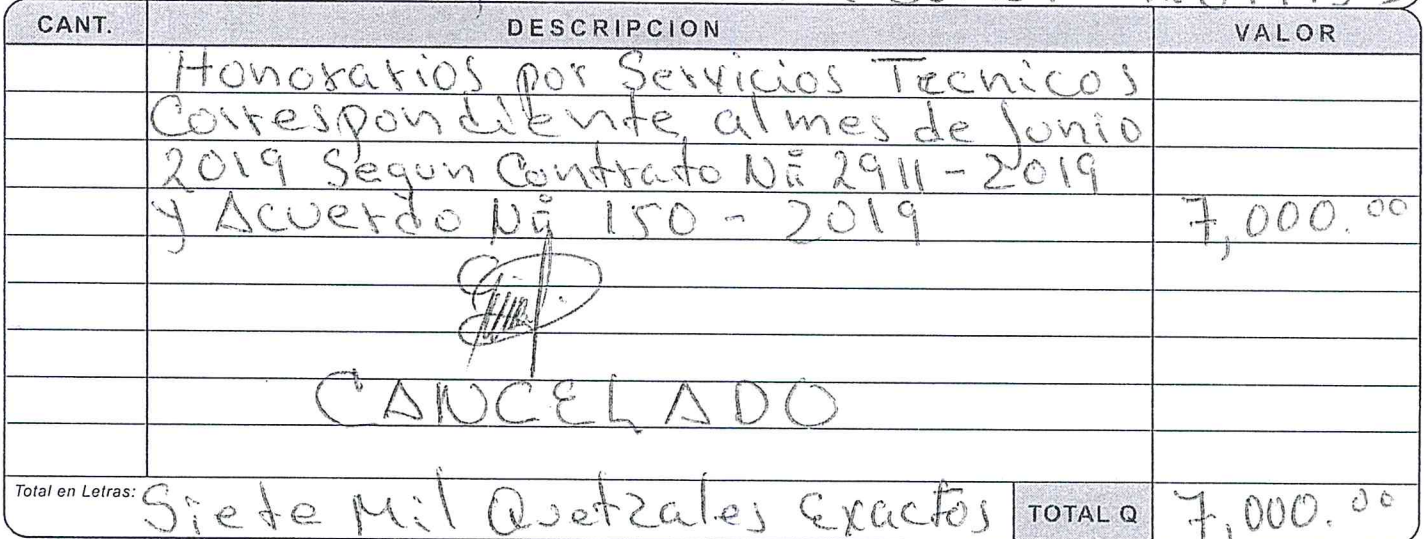 CANT. DESCRIPCION VALOR
Honorarios por Servicios Tecnicos
Correspondiente al mes de Junio
2019 Segun Contrato No 2911-2019
y Acuerdo No 150-2019 7,000.00
CANCELADO
Total en Letras: Siete Mil Quetzales Exactos TOTAL Q 7,000.00